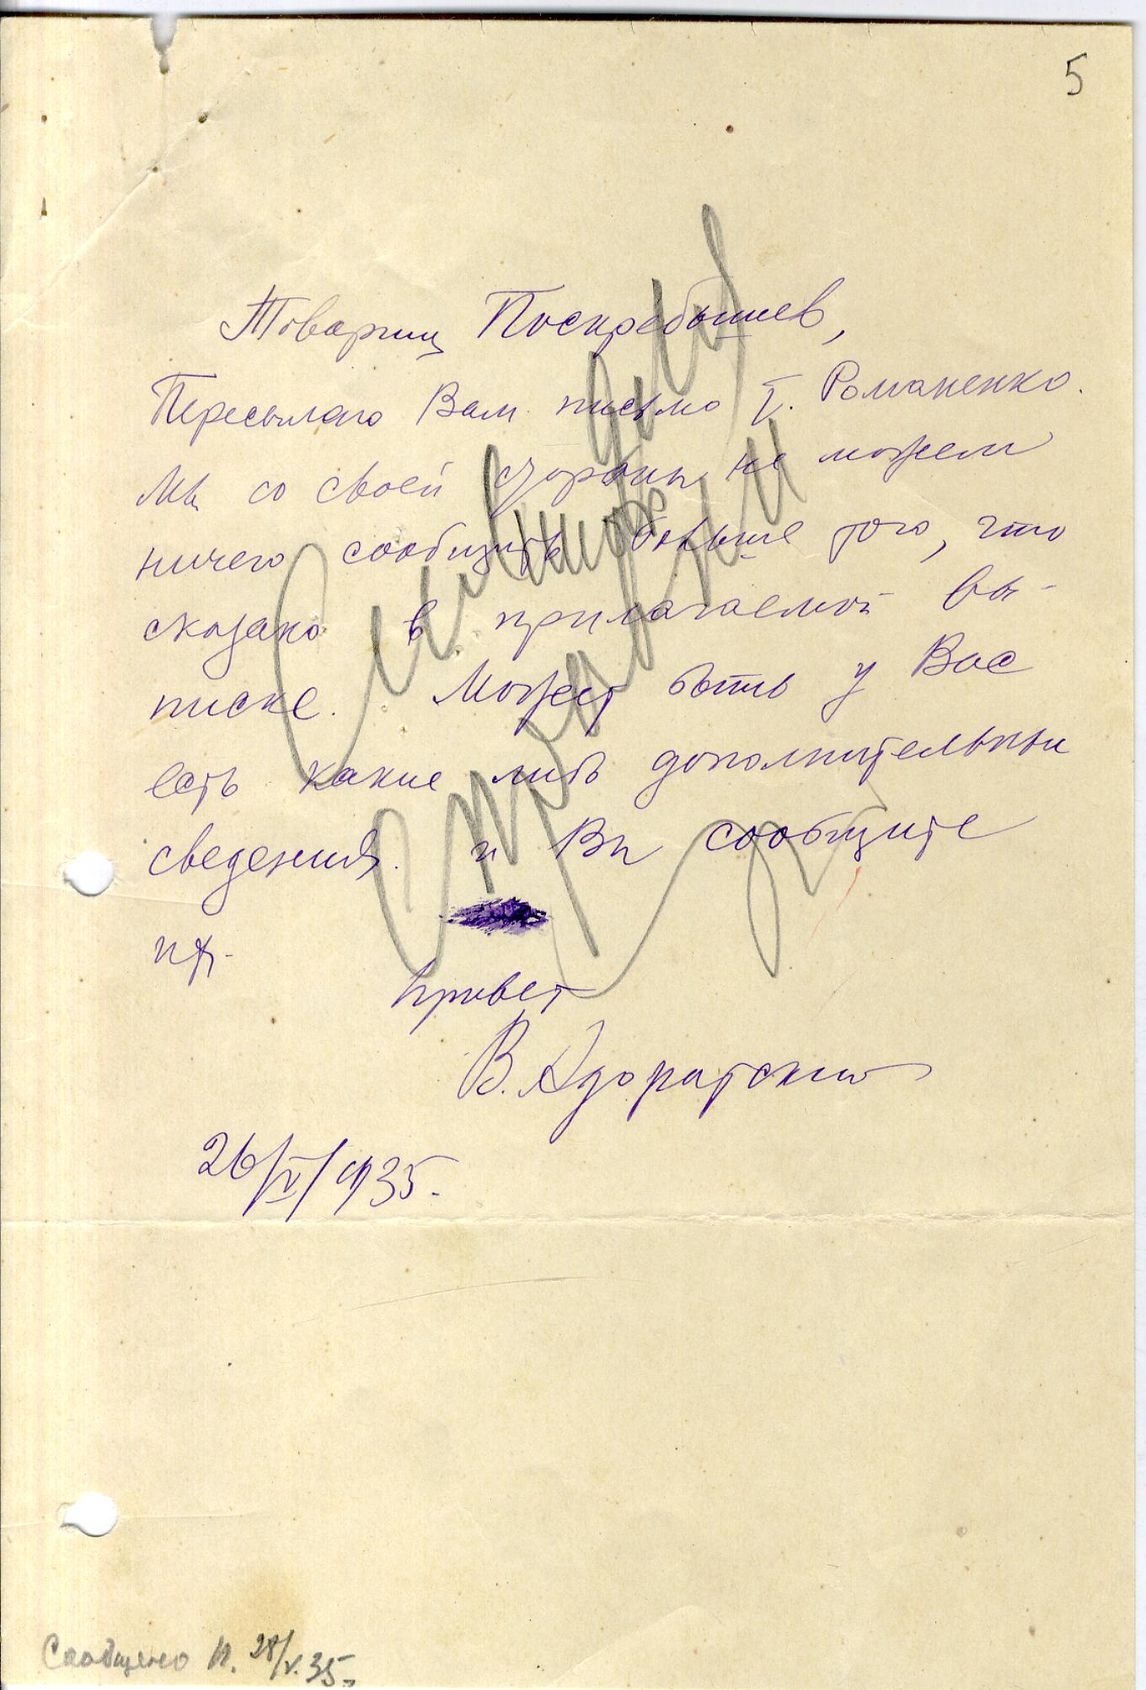 5
Товарищ Поскребышев,
Пересылаю Вам письмо т. Романенко.
Мы со своей стороны не можем
ничего сообщить больше того, что
сказано в прилагаемой вы-
писке. Может быть у Вас
есть какие либо дополнительные
сведения и Вы сообщите
их.
Привет
В. Адоратский
26/V/1935.
Сообщено П. 28/V.35.